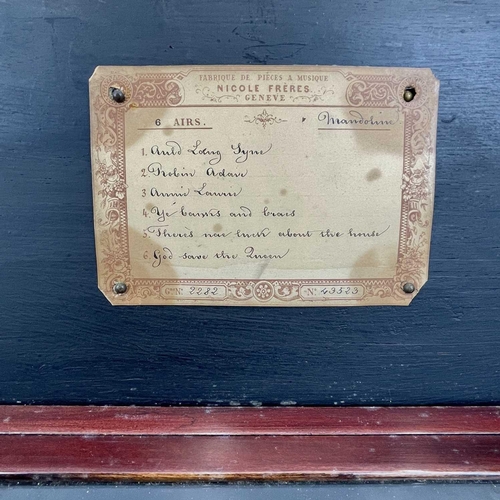 FABRIQUE DE PIÈCES A MUSIQUE
NICOLE FRÈRES.
GENÈVE
6 AIRS. Mandoline
1. Auld Lang Syne
2. Robin Adair
3. Annie Laurie
4. Ye banks and braes
5. Theres nae luck about the house
6. God save the Queen
Gme No. 2282 No. 43523